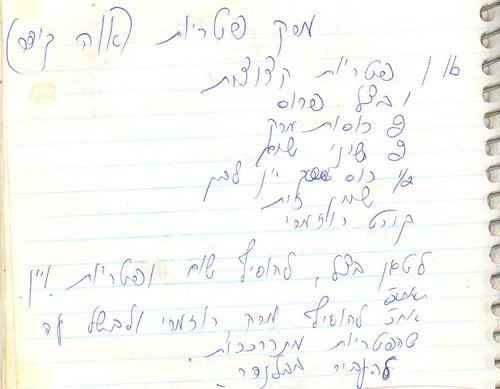 מרק פטריות (אוה קיסר)
סל 1 פטריות קצוצות
1 בצל פרוס
2 כוסות מרק
2 שיני שום
1/2 כוס יין לבן
שמן זית
קורט רוזמרי
לטגן בצל, להוסיף שום ופטריות ויין.
אח"כ להוסיף מרק, רוזמרי ולבשל עד
שהפטריות מתרככות.
להעביר בבלנדר.